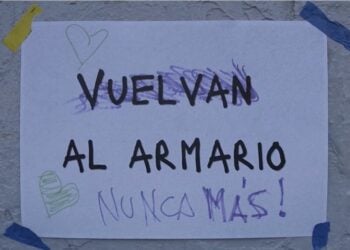 VUELVAN
AL ARMARIO
NUNCA MÁS!